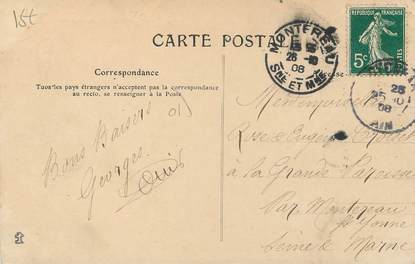 15t
CARTE POSTALE
MONTEREAU
26 -10
08
SNE ET MNE
RÉPUBLIQUE FRANÇAISE
5c
POSTES
Correspondance
Tous les pays étrangers n'acceptent pas la correspondance
au recto, se renseigner à la Poste.
Adresse
25
08
AIN
Bons Baisers
Georges
Louis
Rose et Eugénie
à la Grande Paroisse
Par Montereau
fs Yonne
Seine & Marne